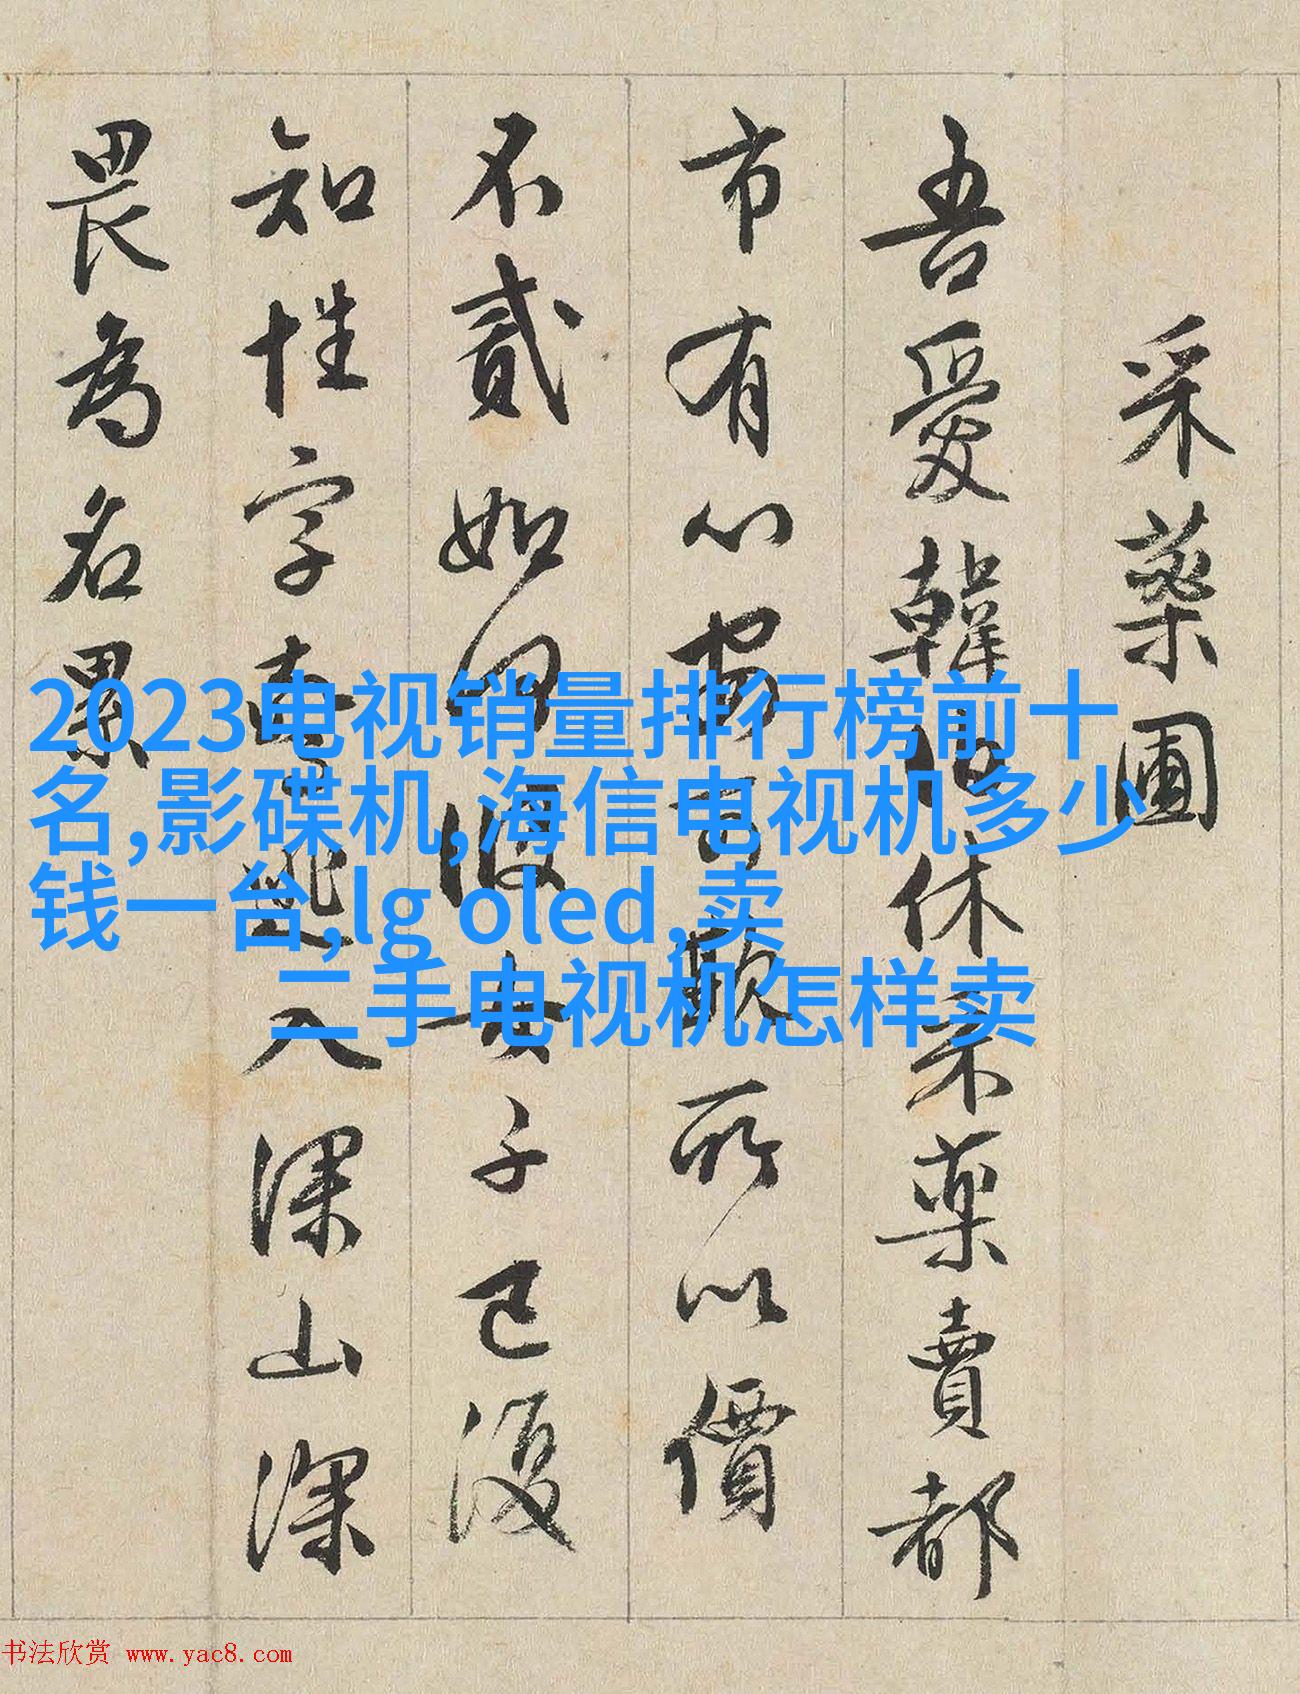 采藥圃
吾愛韓伯休采藥賣都
市有心安可欺所以價
不貳如何彼女子已復
知姓字逃入深山深
畏為名累
2023电视销量排行榜前十
名,影碟机,海信电视机多少
钱一台,lg oled,卖
二手电视机怎样卖
书法欣赏 www.yac8.com